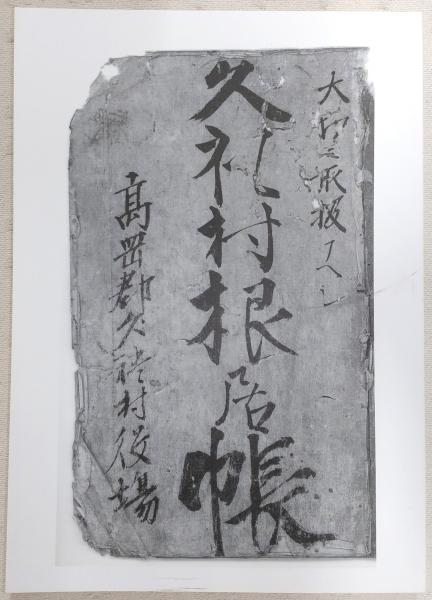 大切ニ取扱フベシ
久礼村根居帳
高岡郡久礼村役場